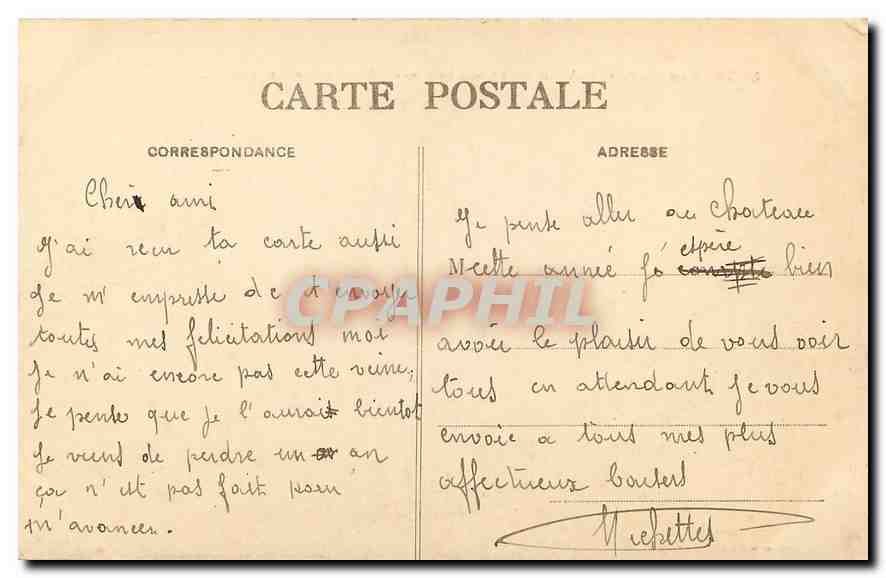 CARTE POSTALE
CORRESPONDANCE
Cher ami
J'ai recu ta carte aussi
Je m'empresse de t envoyer
toutes mes felicitations moi
Je n'ai encore pas cette veine,
Je pense que je l'aurai bientot
Je viens de perdre un an
ça n'est pas fait pour
m'avancer.
ADRESSE
Je pense aller au Chateau
cette année j' espère bien
avoir le plaisir de vous voir
tous en attendant je vous
envoie a tous mes plus
affectueux baisers
CPAPHIL